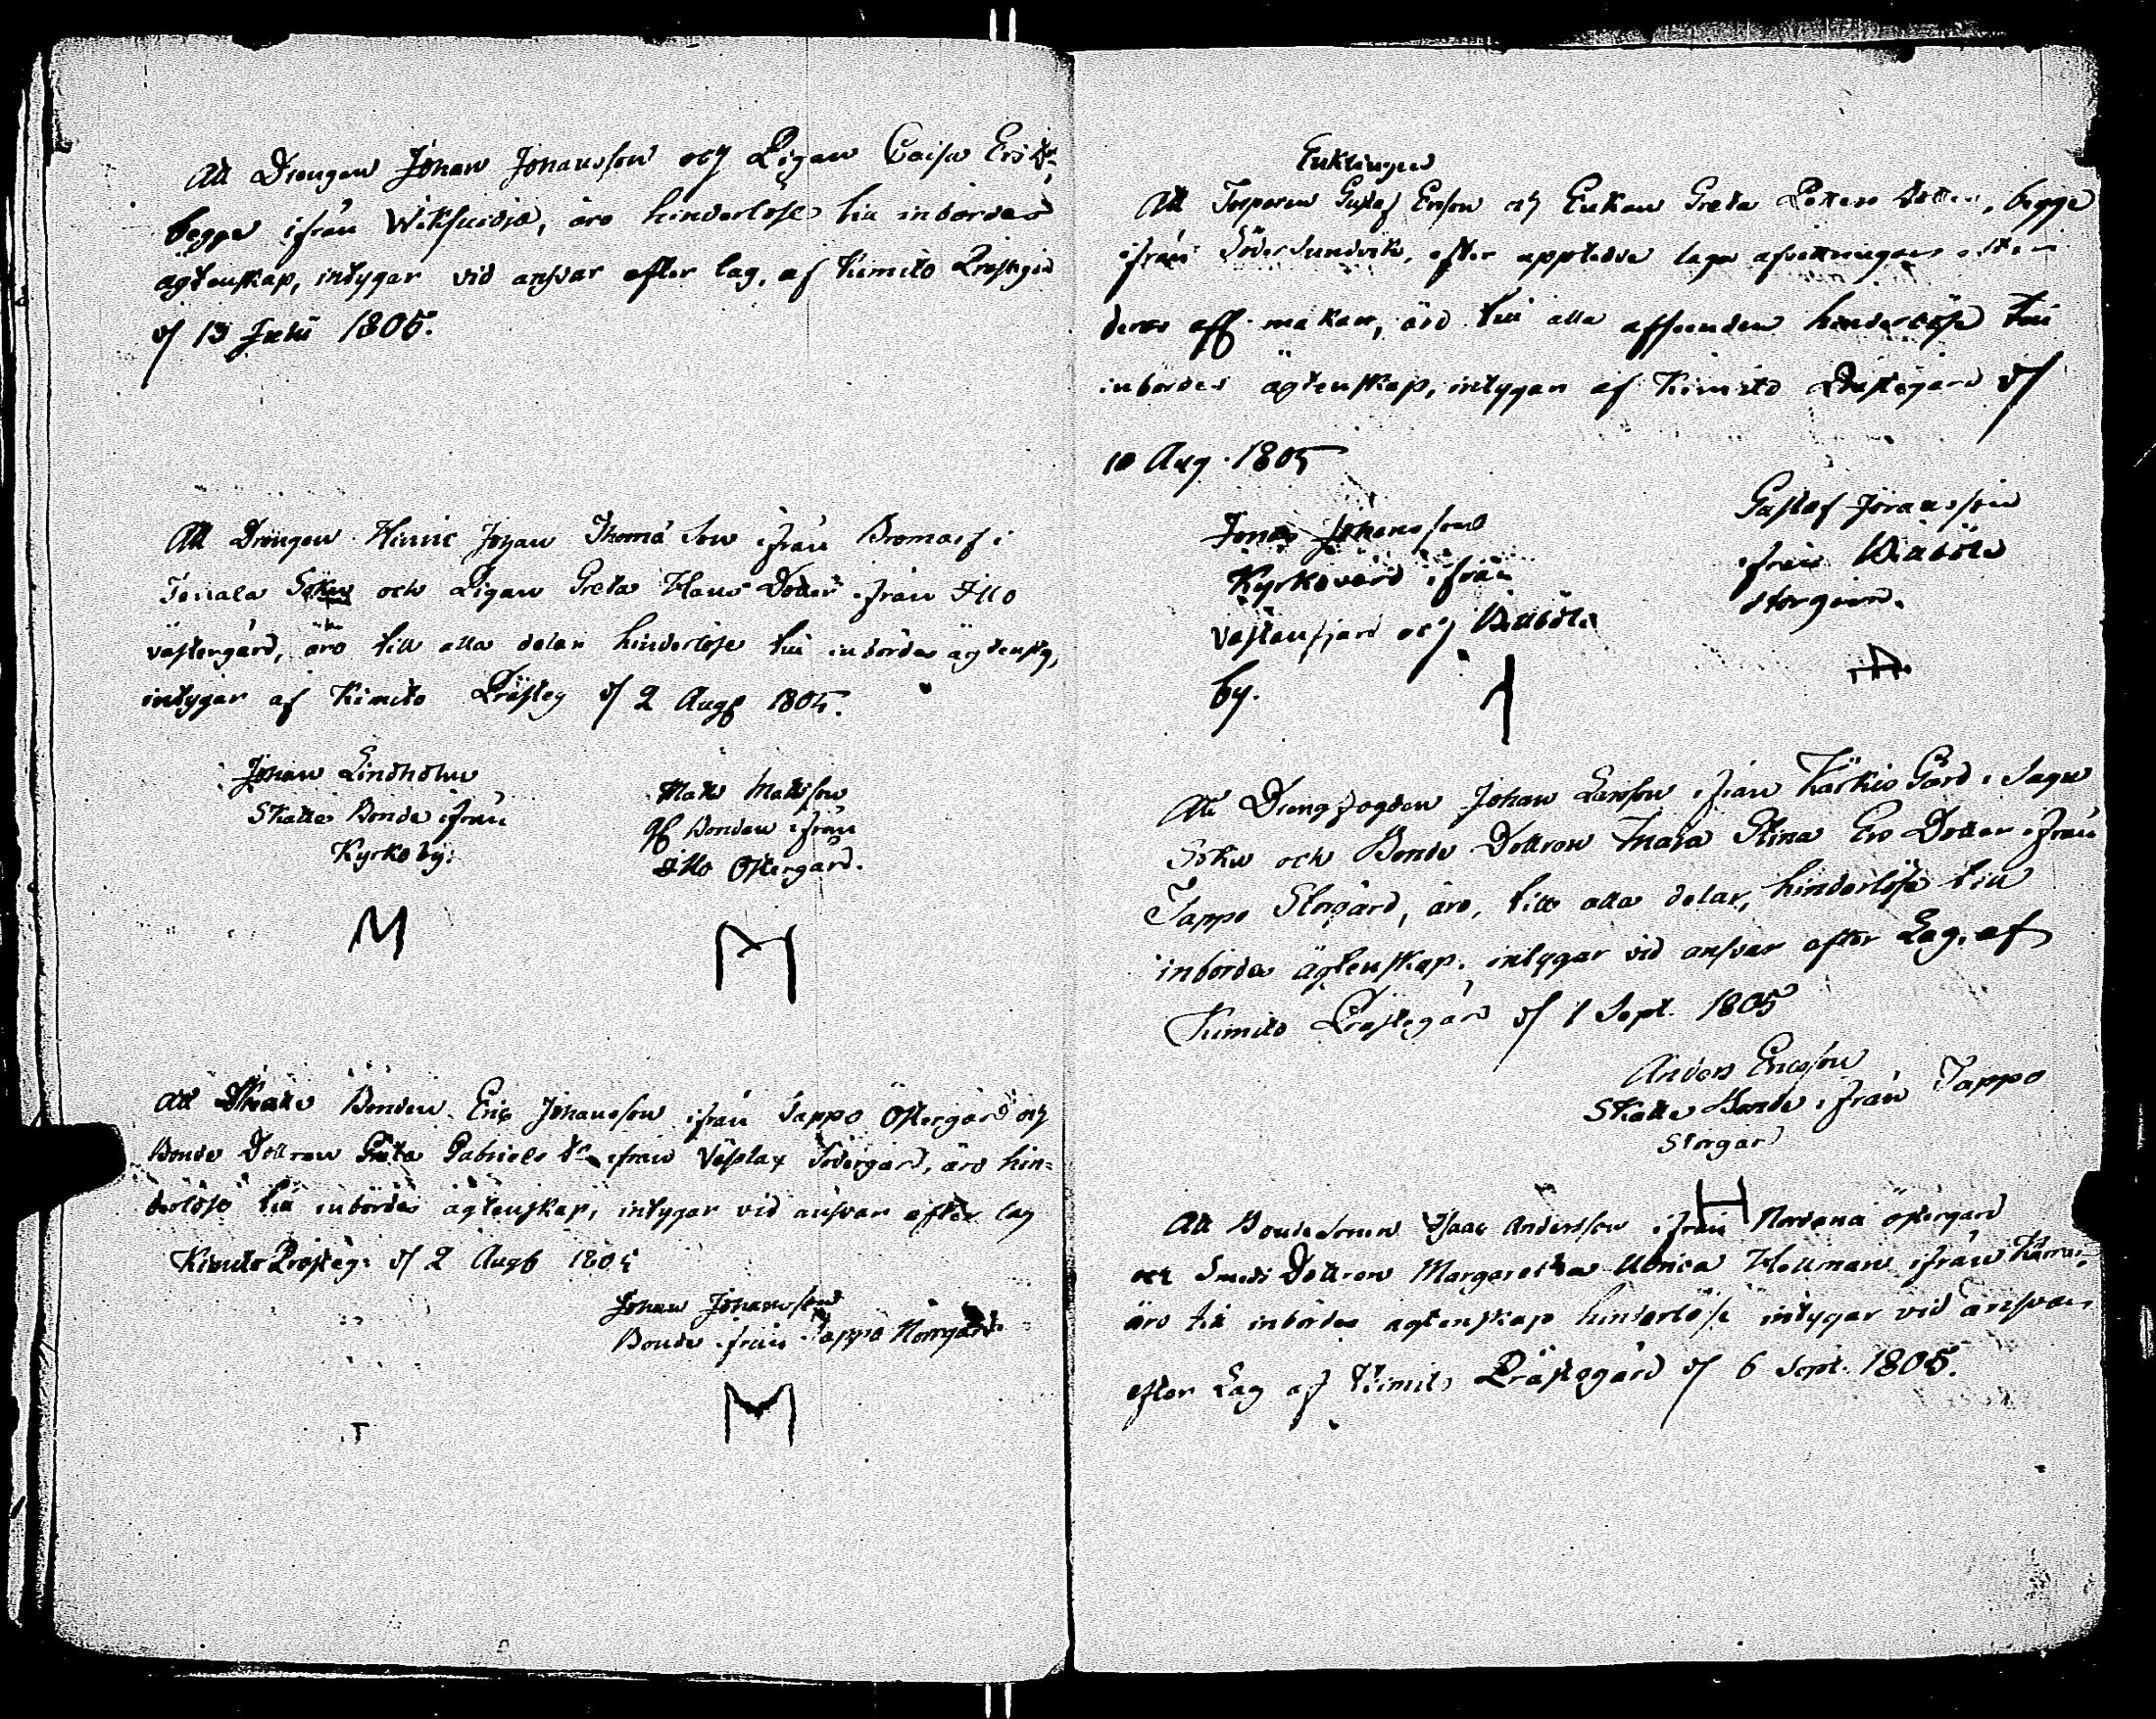 Att Drengen Johan Johansson och Pigan Caisa Ers Dr
begge ifrån Wiksvidja, äro hinderlöse till inbördes
ägtenskap, intygar vid ansvar efter lag, af Kimito Prästegård
d/ 13 Julii 1805.
Att Drängen Hinric Johan Thomæ Son ifrån Bromarf i
Tenala Sokn och Pigan Greta Hans Dotter ifrån Illo
västergård, äro till alla delar hinderlöse till inbördes ägtensk,
intygar af Kimito Prästeg d/ 2 Aug 1805.
Johan Lindholm
Skatte Bonde ifrån
Kyrkoby.
Matts Mattsson
Bonden ifrån
Illo Östergård.
M
Att Skatte Bonden Eric Johansson ifrån Tappo Östergård och
Bonde Dottren Greta Gabriels Dr ifrån Västlax Södergård, äro hin=
derlöse till inbördes ägtenskap, intygar vid ansvar efter lag
Kimito Prästeg. d/ 2 Aug 1805
Johan Johansson
Bonde ifrån Tappo Norrgård
M
Enklingen
Att Torparen Gustaf Ersson och Enkan Greta Peters Dotter, begge
ifrån Söder Sundvik, efter upptedde laga afvittningar efter
deras afl. makar, äro till alla afseenden hinderlöse till
inbördes ägtenskap, intygar af Kimito Prästegård d/
10 Aug. 1805
Jonas Johansson
Kyrkovärd ifrån
Västanfjärd och
by.
Gustaf Joransson
ifrån
storgård.
Att Drengfogden Johan Larsson ifrån Kärkis Gård i Sagu
Sokn och Bonde Dottren Maja Stina Ers Dotter ifrån
Tappo Storgård, äro, till alla delar, hinderlöse till
inbördes ägtenskap, intygar vid ansvar efter Lag, af
Kimito Prästegård d/ 1 Sept. 1805
Anders Ericsson
Skatte Bonde ifrån Tappo
Storgård
H
Att Bondesonen Isaac Andersson ifrån Nordanå östergård
och Smeds Dottren Margaretha Ulrica Hellman ifrån
äro till inbördes ägtenskap hinderlöse intygar vid ansvar
efter Lag af Kimito Prästegård d/ 6 Sept. 1805.